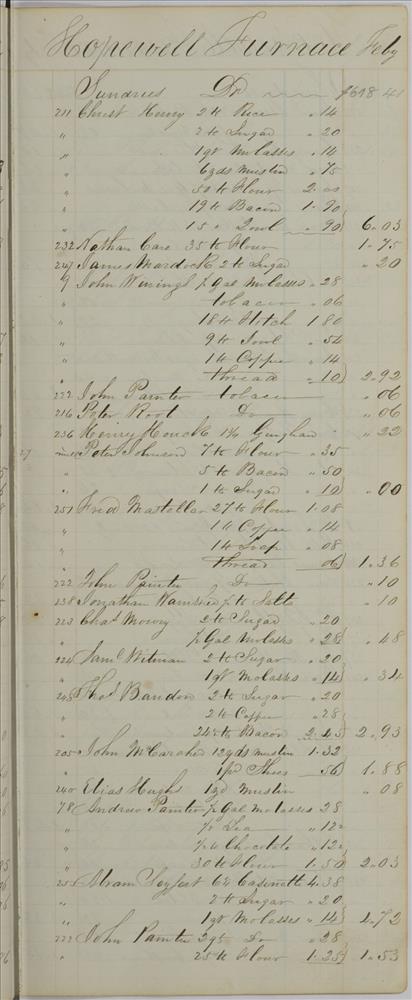 Hopewell Furnace Feby
Sundries Dr $698 41
211 Christ Henry 2 lb Rice " 14
" 2 lb Sugar " 20
" 1 qt Molasses " 14
" 6 yds muslin " 75
" 50 lb Flour 2.00
" 19 lb Bacon 1.90
" 15 " Jowl " 90 6.03
232 Nathan Care 35 lb Flour 1.75
247 James Murdock 2 lb Sugar " 20
9 John Winingh ½ Gal Molasses " 28
" tobacco " 06
" 18 lb Flitch 1 80
" 9 lb Jowl " 54
" 1 lb Coffee " 14
" thread " 10 2.92
222 John Painter tobacco " 06
216 Peter Root Do " 06
236 Henry Houck 1¾ Gingham " 22
27 Peter Johnson 7 lb Flour " 35
" 5 lb Bacon " 50
" 1 lb Sugar " 10 " 00
251 Fred Mastellar 27 lb Flour 1.08
" 1 lb Coffee " 14
" 1 lb Soap " 08
" thread 06 1.36
222 John Painter Do " 10
238 Jonathan ½ lb Salts " 10
223 Chas Mowry 2 lb Sugar " 20
" ½ Gal Molasses " 28 " 48
224 Saml Witman 2 lb Sugar " 20
" 1 qt Molasses " 14 " 34
248 Thos Bandon 2 lb Sugar " 20
" 2 lb Coffee " 28
" 24½ lb Bacon 2.45 2.93
205 John McCaraher 12 yds muslin 1.32
" 1 pr Shoes " 56 1.88
240 Elias Hughs 1 yd Muslin " 08
78 Andrew Painter ½ Gal Molasses 28
" ½ Tea " 12½
" ½ lb Chocolate " 12½
" 30 lb Flour 1.50 2.03
252 Abram Seyfert 6¼ Casinette 4.38
" 2 lb Sugar " 20
" 1 qt Molasses " 14 4.72
222 John Painter 2 qts Do " 28
" 25 lb Flour 1.25 1.53